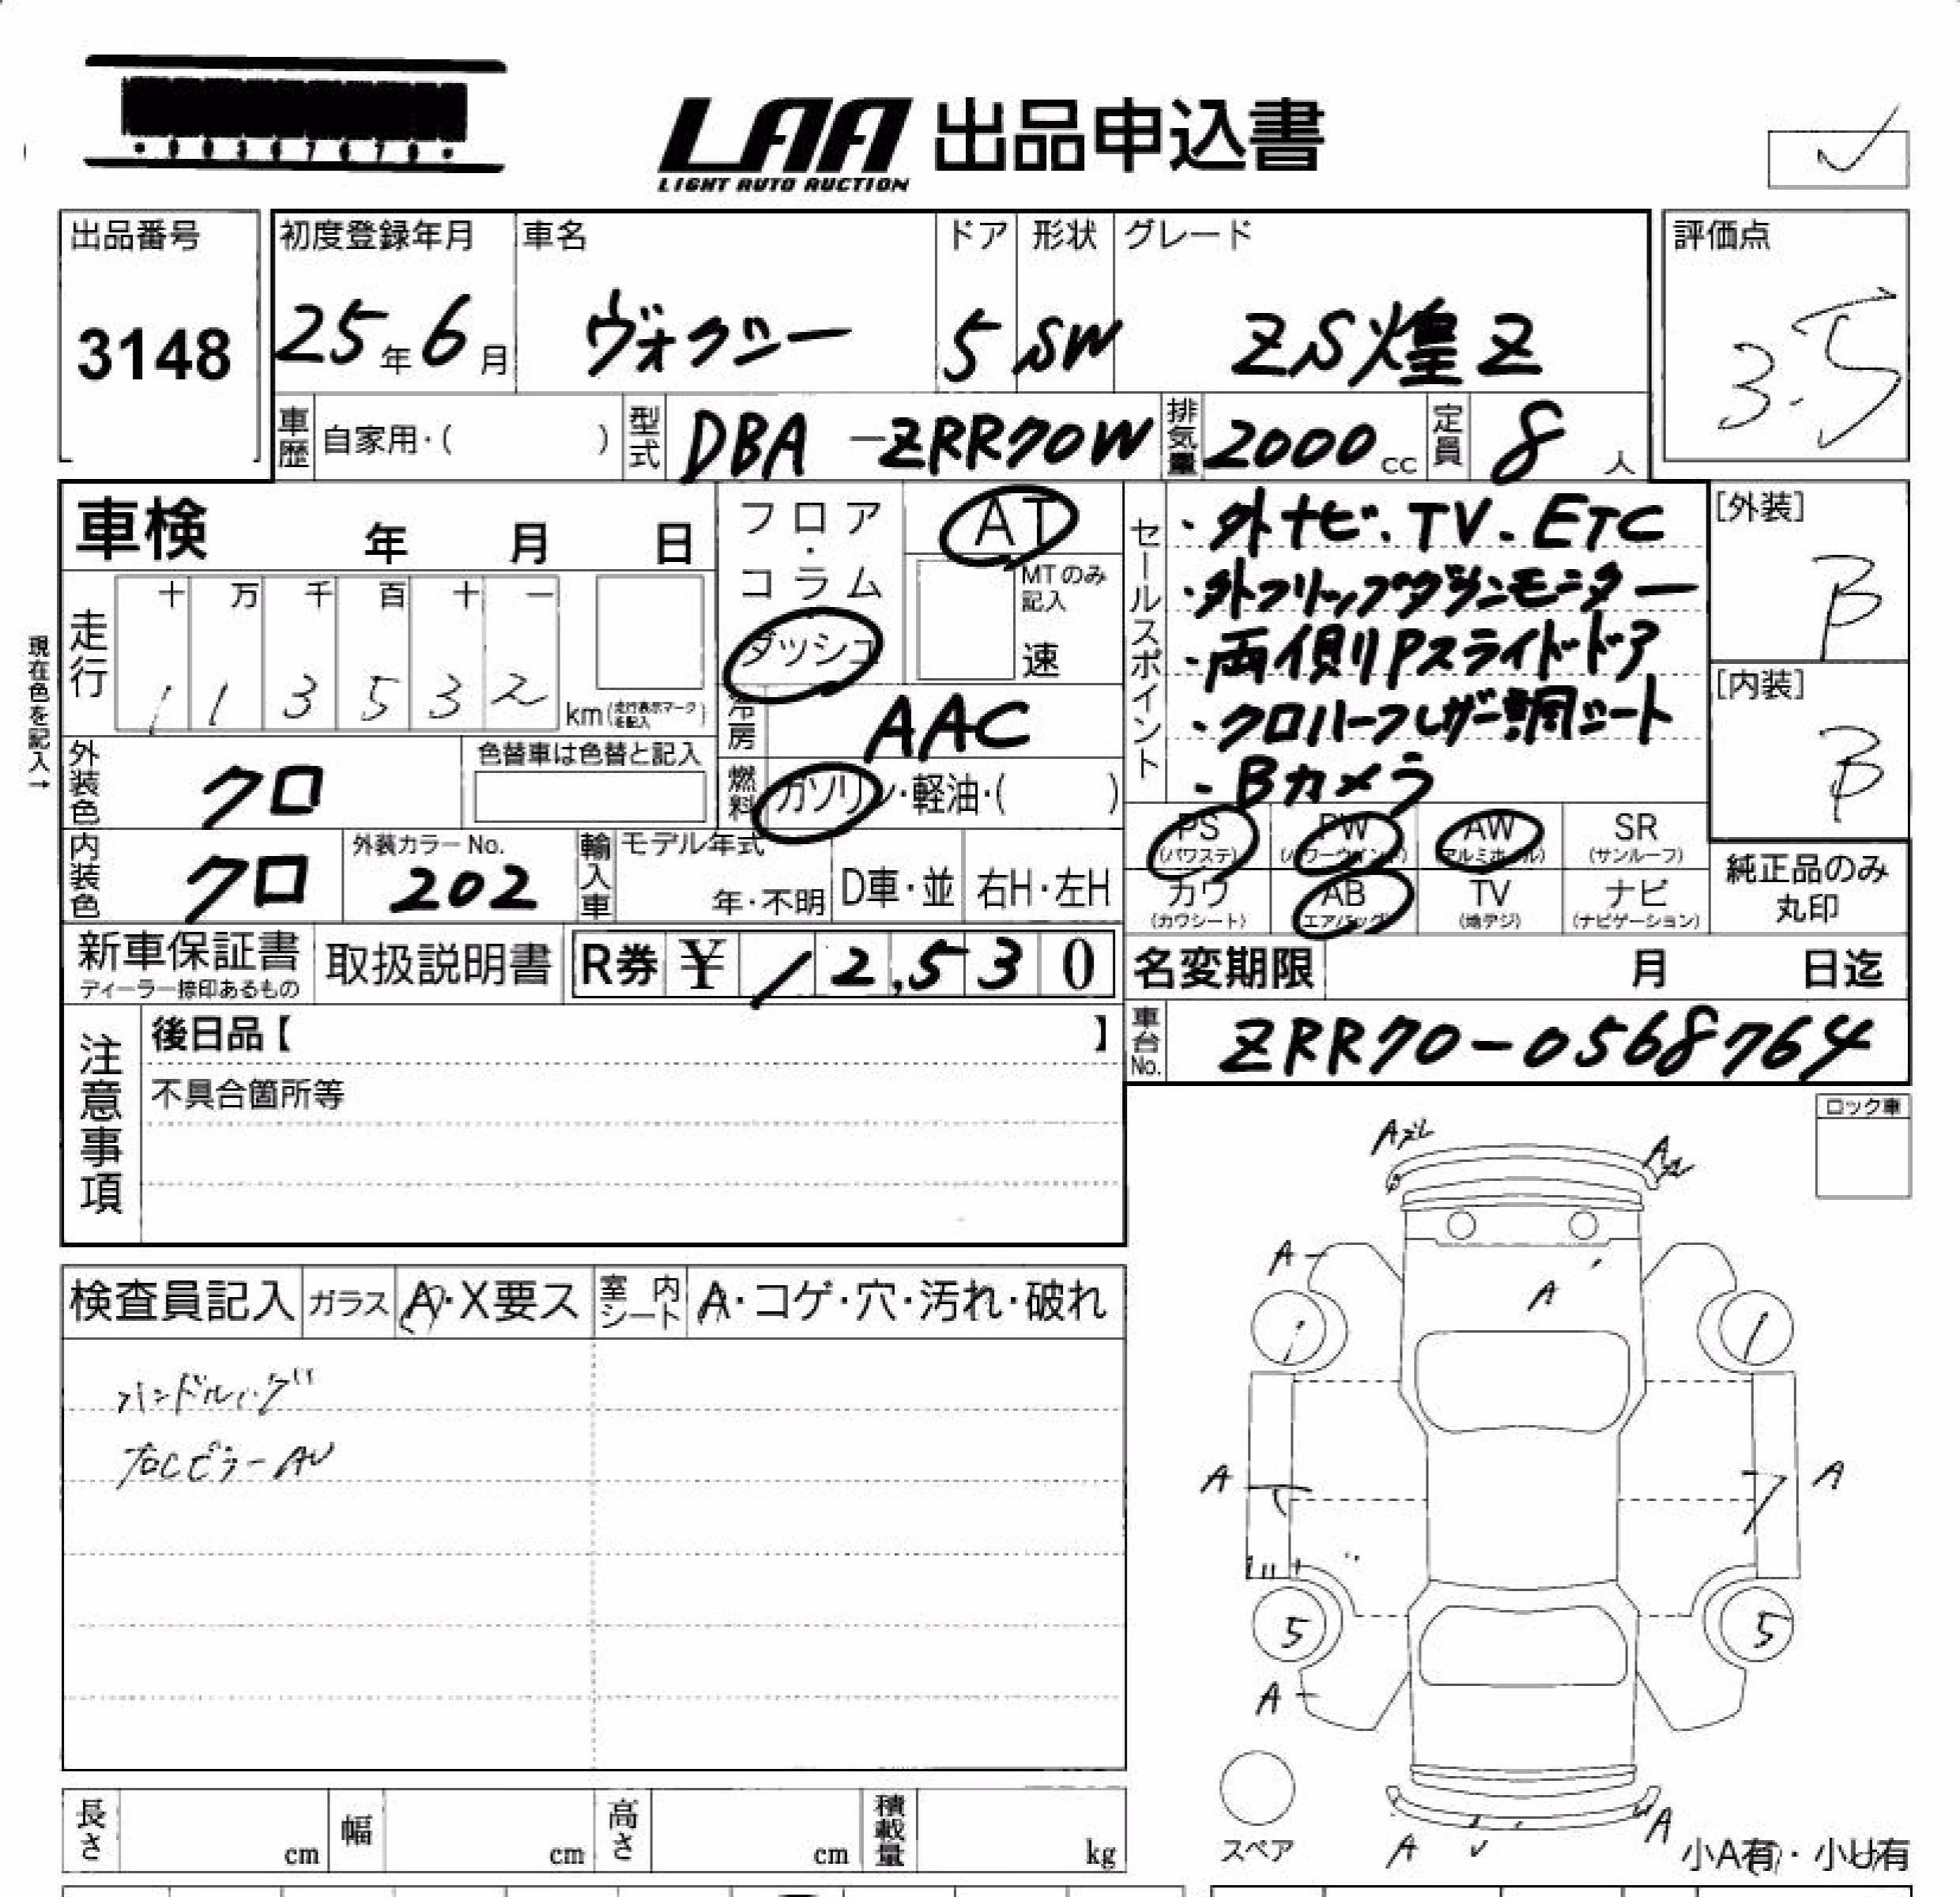 LAA 出品申込書
LIGHT AUTO AUCTION
出品番号
3148
初度登録年月
25年6月
車名
ヴォクシー
ドア
5
形状
SW
グレード
ZS煌Z
評価点
3.5
車歴 自家用・( )
型式 DBA-ZRR70W
排気量 2000cc
定員 8人
車検 年 月 日
フロア・コラム
ダッシュ
AT
MTのみ記入
速
セールスポイント
・外ナビ.TV.ETC
・外フリップダウンモニター
・両側Pスライドドア
・クロハーフレザー調シート
・Bカメラ
[外装]
B
[内装]
B
現在色を記入→
走行
十 万 千 百 十 一
1 1 3 5 3 2 km(走行表示マークを記入)
冷房 AAC
燃料 ガソリン・軽油・( )
外装色 クロ
色替車は色替と記入
内装色 クロ
外装カラーNo.
202
輸入車 モデル年式
年・不明
D車・並
右H・左H
PS (パワステ)
PW (パワーウインド)
AW (アルミホイール)
SR (サンルーフ)
カワ (カワシート)
AB (エアバッグ)
TV (地デジ)
ナビ (ナビゲーション)
純正品のみ丸印
新車保証書
ディーラー捺印あるもの
取扱説明書
R券 ¥ 12,530
名変期限 月 日迄
車台No. ZRR70-0568764
注意事項
後日品【 】
不具合箇所等
ロック車
検査員記入 ガラス A・X要ス 室内シート A・コゲ・穴・汚れ・破れ
ハンドルハゲ
右CピラーAU
A
A
A
A
1
1
A
A
5
5
A
A
A
スペア
小A有・小U有
長さ cm 幅 cm 高さ cm 積載量 kg